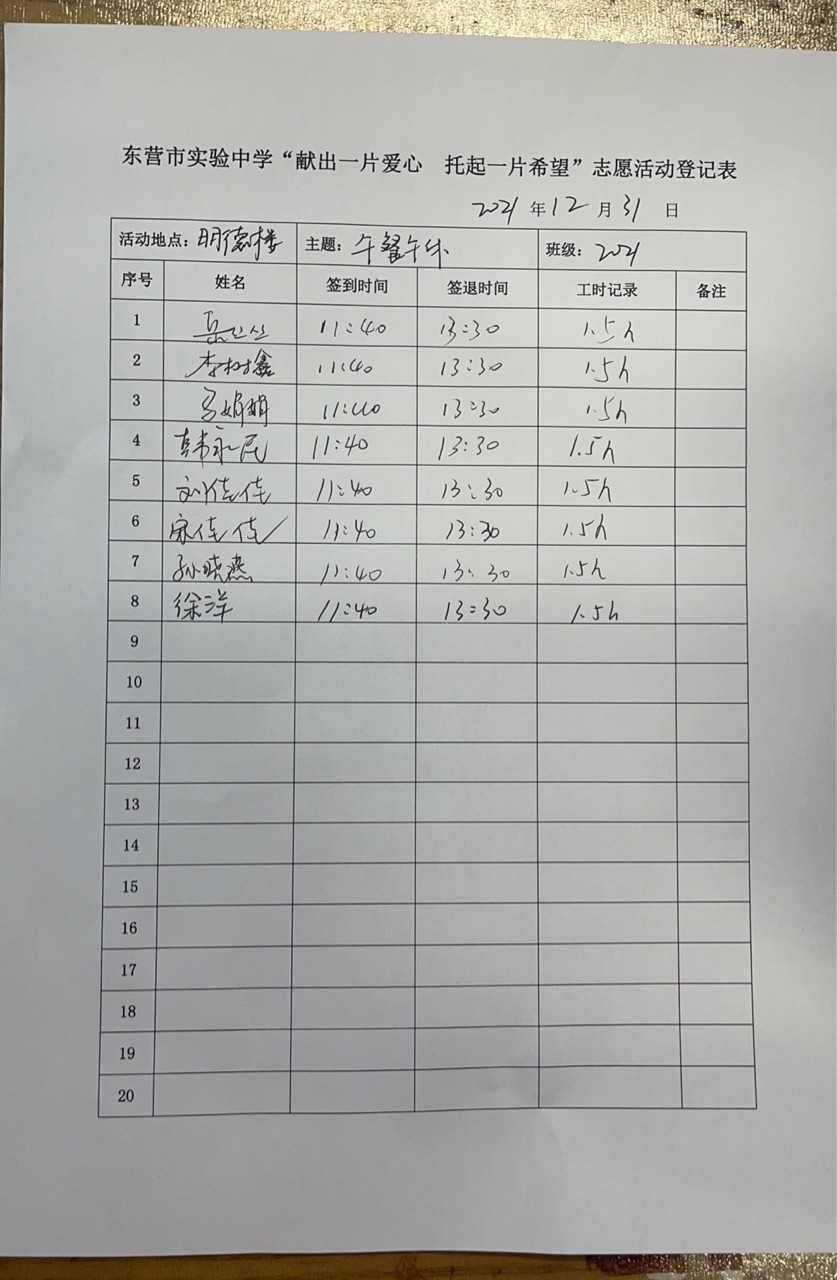 东营市实验中学“献出一片爱心 托起一片希望”志愿活动登记表
2021 年 12 月 31 日
活动地点：明德楼 主题：午餐午休 班级：2021
序号 姓名 签到时间 签退时间 工时记录 备注
1 11:40 13:30 1.5h
2 李树鑫 11:40 13:30 1.5h
3 马娟娟 11:40 13:30 1.5h
4 韩永民 11:40 13:30 1.5h
5 刘佳佳 11:40 13:30 1.5h
6 宋佳佳 11:40 13:30 1.5h
7 孙晓燕 11:40 13:30 1.5h
8 徐洋 11:40 13:30 1.5h
9
10
11
12
13
14
15
16
17
18
19
20